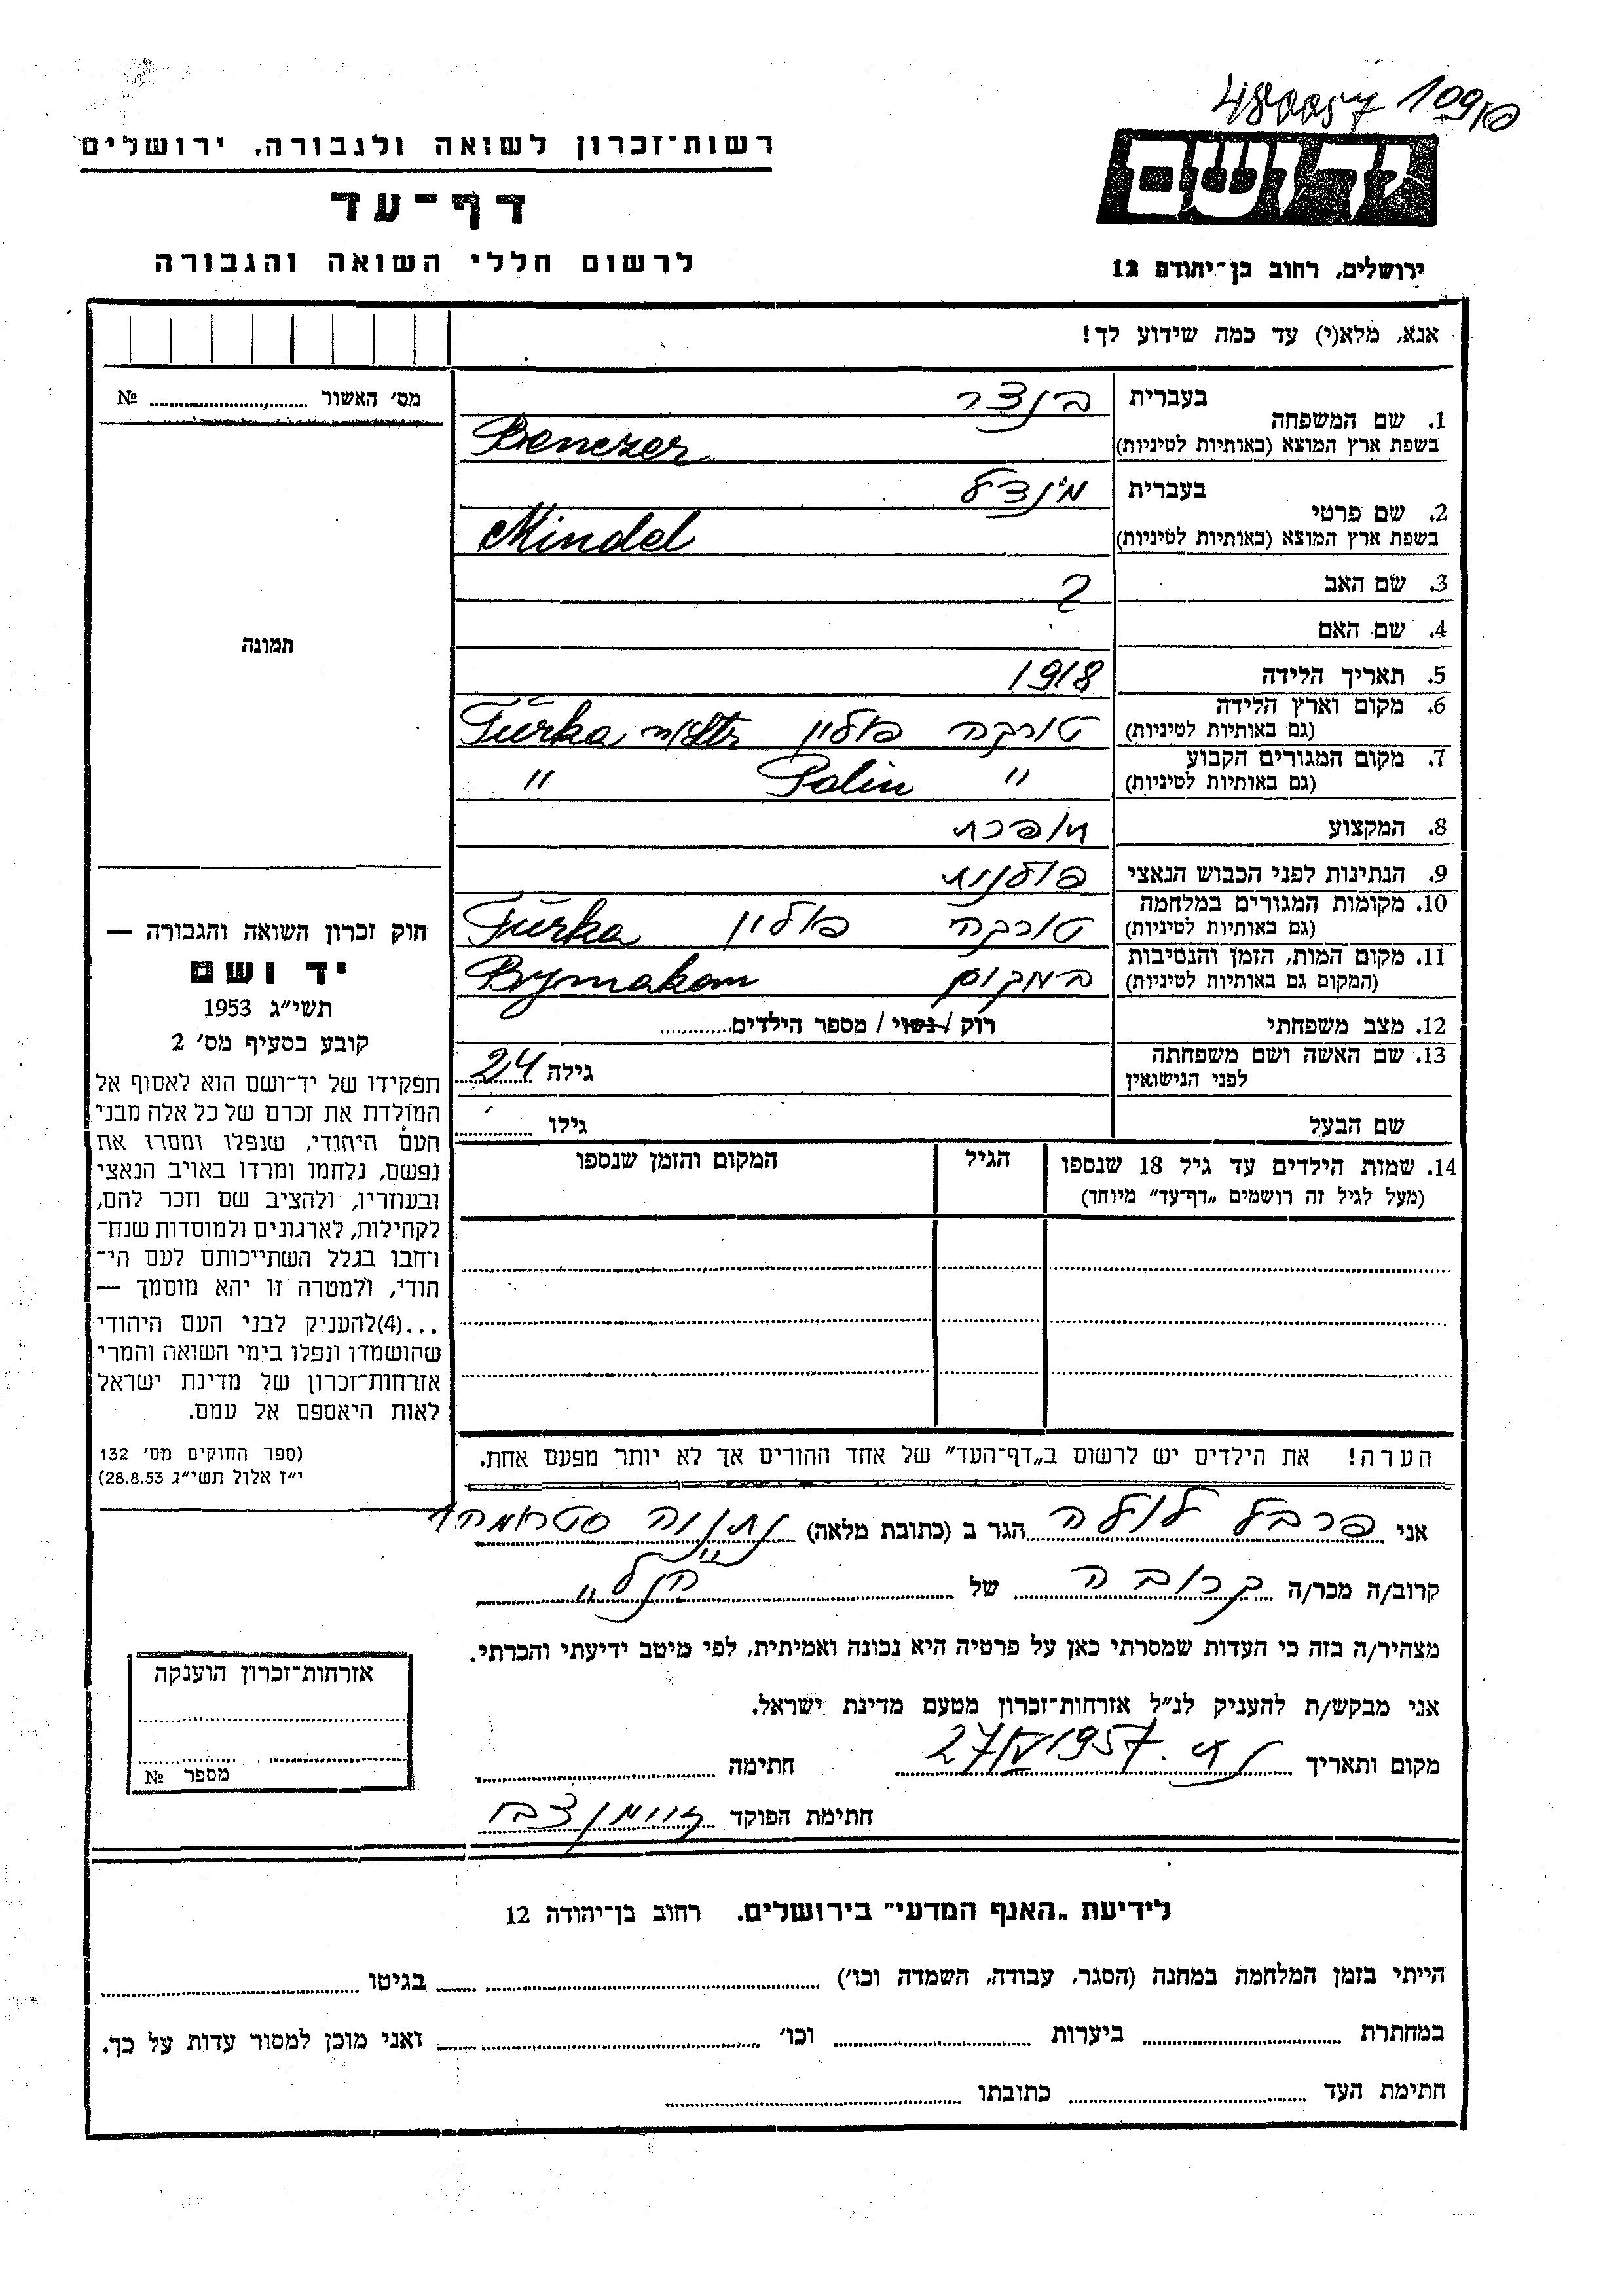 480057 109/פ
רשות-זכרון לשואה ולגבורה, ירושלים
דף-עד
לרשום חללי השואה והגבורה
יד ושם
ירושלים, רחוב בן-יהודה 12
אנא, מלא(י) עד כמה שידוע לך!
מס׳ האשור № 
תמונה
בעברית בנצר
1. שם המשפחה
בשפת ארץ המוצא (באותיות לטיניות) Benezer
בעברית מינדל
2. שם פרטי
בשפת ארץ המוצא (באותיות לטיניות) Mindel
3. שם האב ?
4. שם האם
5. תאריך הלידה 1918
6. מקום וארץ הלידה
(גם באותיות לטיניות) טורקה פולין Turka n/Str
7. מקום המגורים הקבוע
(גם באותיות לטיניות) " Polin "
8. המקצוע תופרת
9. הנתינות לפני הכבוש הנאצי פולנית
10. מקומות המגורים במלחמה
(גם באותיות לטיניות) טורקה פולין Turka
11. מקום המות, הזמן והנסיבות
(המקום גם באותיות לטיניות) במקום Bymakom
12. מצב משפחתי רוק / נשוי / מספר הילדים
13. שם האשה ושם משפחתה
לפני הנישואין גילה 24
שם הבעל גילו
14. שמות הילדים עד גיל 18 שנספו הגיל המקום והזמן שנספו
(מעל לגיל זה רושמים „דף-עד” מיוחד)
הערה! את הילדים יש לרשום ב„דף-העד” של אחד ההורים אך לא יותר מפעם אחת.
חוק זכרון השואה והגבורה —
יד ושם
תשי״ג 1953
קובע בסעיף מס׳ 2
תפקידו של יד-ושם הוא לאסוף אל
המולדת את זכרם של כל אלה מבני
העם היהודי, שנפלו ומסרו את
נפשם, נלחמו ומרדו באויב הנאצי
ובעוזריו, ולהציב שם וזכר להם,
לקהילות, לארגונים ולמוסדות שנח-
רחבו בגלל השתייכותם לעם הי-
הודי, ולמטרה זו יהא מוסמך —
...(4)להעניק לבני העם היהודי
שהושמדו ונפלו בימי השואה והמרי
אזרחות-זכרון של מדינת ישראל
לאות היאספם אל עמם.
(ספר החוקים מס׳ 132
י״ז אלול תשי״ג 28.8.53)
אני פרבל לולה הגר ב (כתובת מלאה) נתניה
קרוב/ה מכר/ה קרובה של הנ"ל
מצהיר/ה בזה כי העדות שמסרתי כאן על פרטיה היא נכונה ואמיתית, לפי מיטב ידיעתי והכרתי.
אני מבקש/ת להעניק לנ״ל אזרחות-זכרון מטעם מדינת ישראל.
מקום ותאריך 27/V 1957 חתימה
חתימת הפוקד
אזרחות-זכרון הוענקה
מספר №
לידיעת „האגף המדעי” בירושלים, רחוב בן-יהודה 12
הייתי בזמן המלחמה במחנה (הסגר, עבודה, השמדה וכו׳) בגיטו
במחתרת ביערות וכו׳ ואני מוכן למסור עדות על כך.
חתימת העד כתובתו